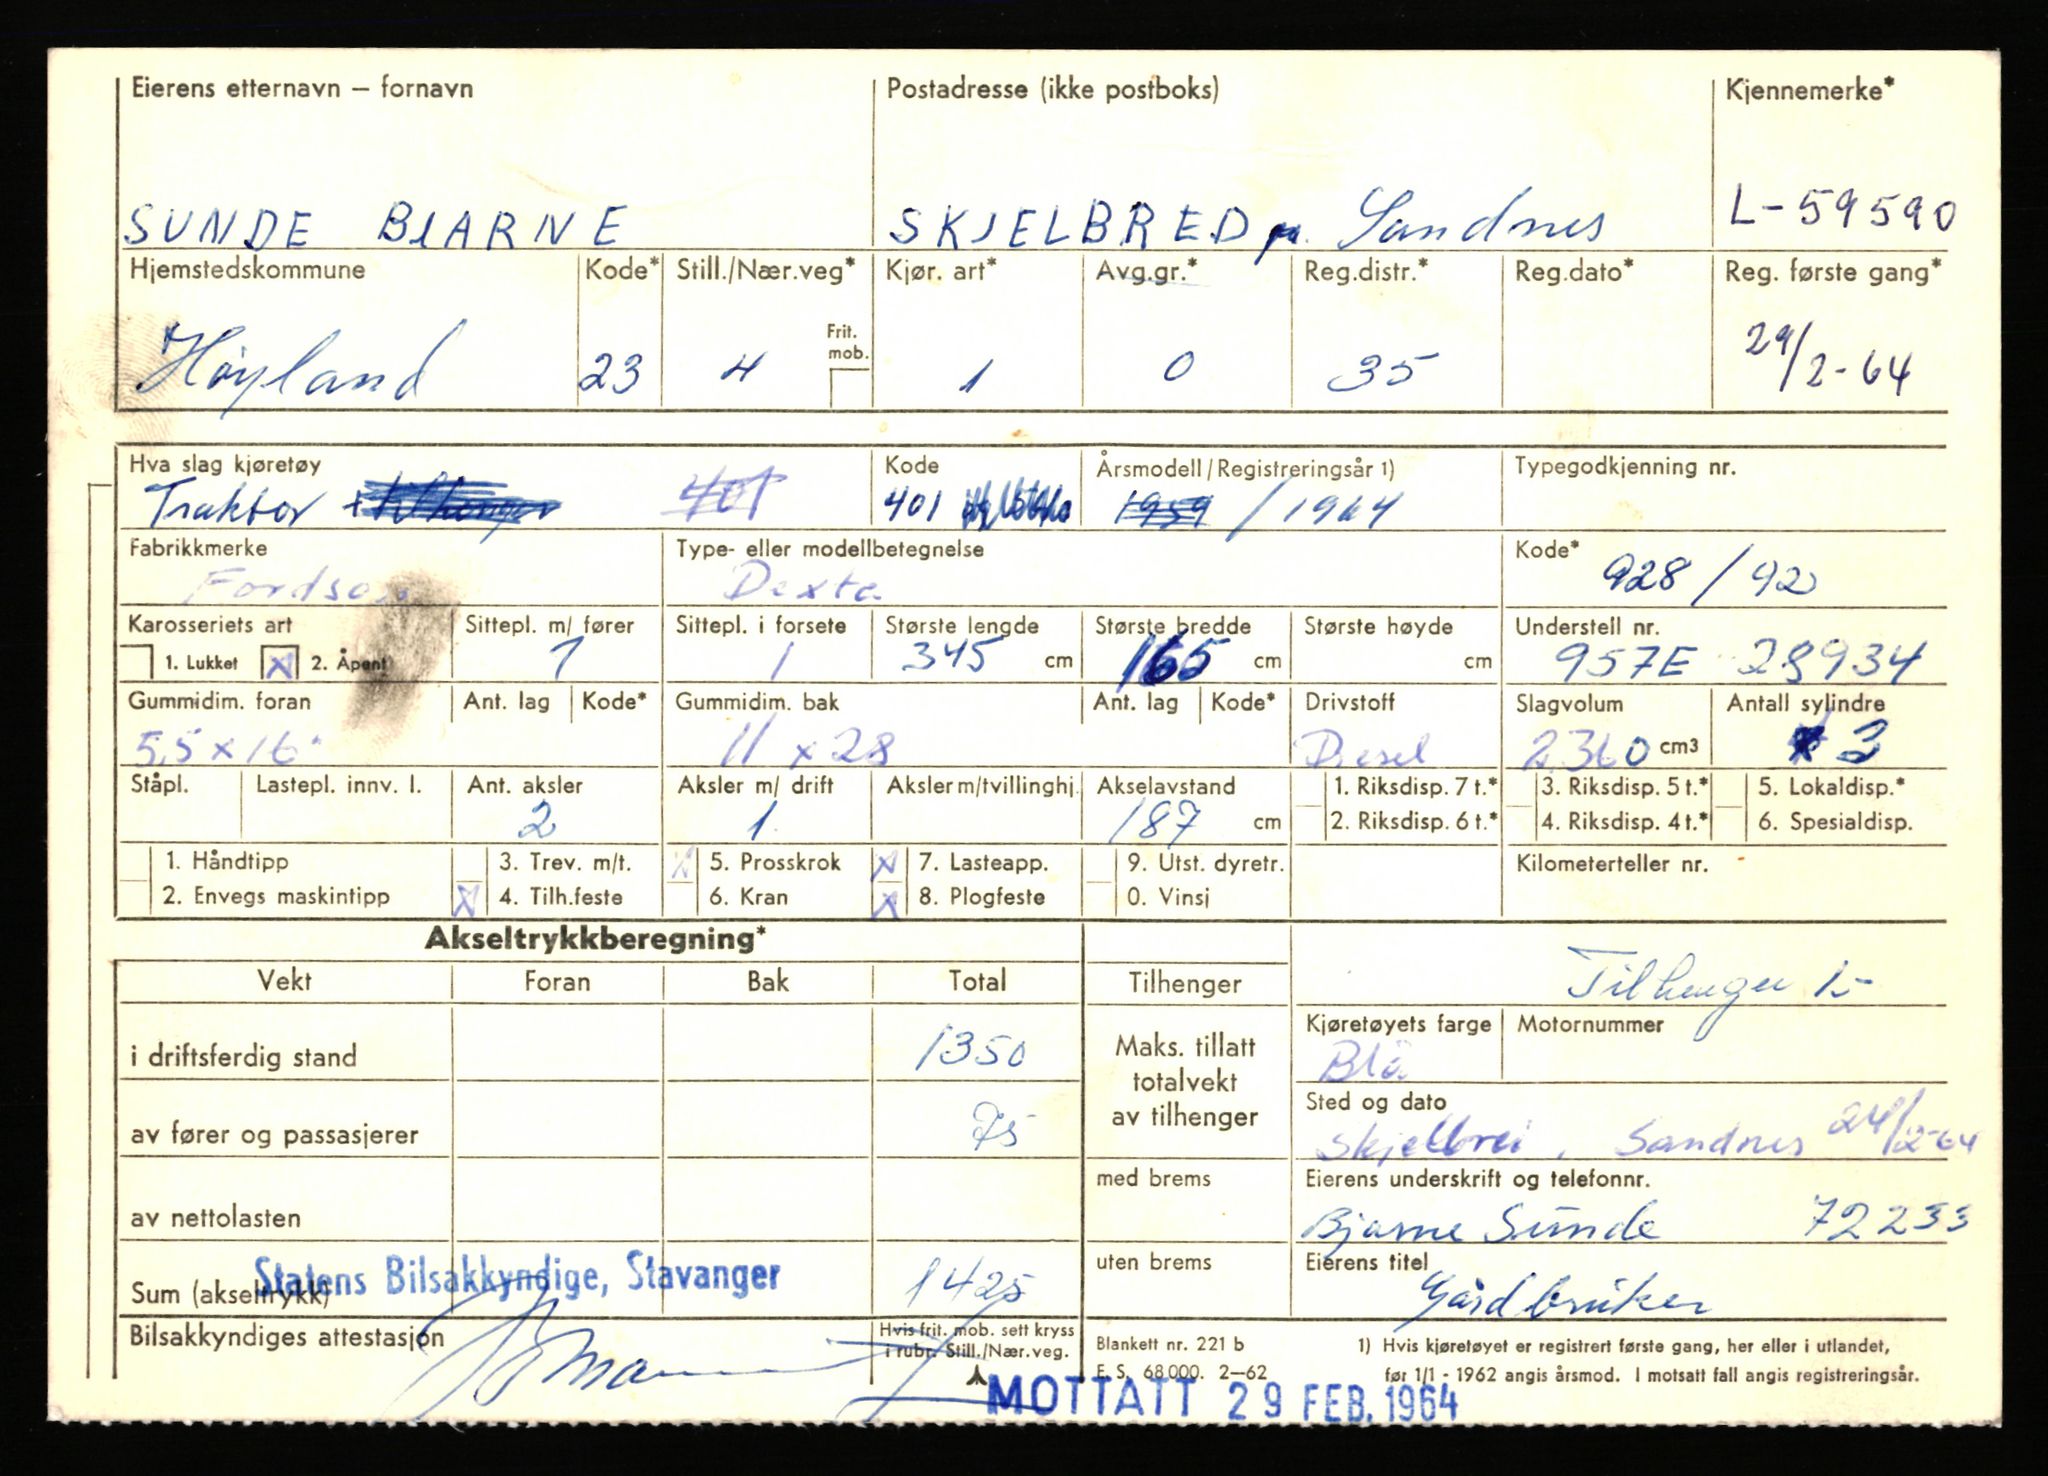 Eierens etternavn – fornavn Postadresse (ikke postboks) Kjennemerke*
SUNDE BJARNE SKJELBRED pr. Sandnes L-59590
Hjemstedskommune Kode* Still./Nær.veg* Kjør. art* Avg.gr.* Reg.distr.* Reg.dato* Reg. første gang*
Frit. mob.
Høyland 23 4 1 0 35 29/2-64
Hva slag kjøretøy Kode Årsmodell/Registreringsår 1) Typegodkjenning nr.
Traktor + tilhenger 401 401 1959 / 1964
Fabrikkmerke Type- eller modellbetegnelse Kode*
Fordson Dexta 928 / 92
Karosseriets art Sittepl. m/ fører Sittepl. i forsete Største lengde Største bredde Største høyde Understell nr.
1. Lukket X 2. Åpent 1 1 345 cm 165 cm cm 957E 28934
Gummidim. foran Ant. lag Kode* Gummidim. bak Ant. lag Kode* Drivstoff Slagvolum Antall sylindre
5,5 x 16" 11 x 28 Diesel 2360 cm3 3
Ståpl. Lastepl. innv. l. Ant. aksler Aksler m/ drift Aksler m/tvillinghj. Akselavstand 1. Riksdisp. 7 t.* 3. Riksdisp. 5 t.* 5. Lokaldisp.*
2 1 187 cm 2. Riksdisp. 6 t.* 4. Riksdisp. 4 t.* 6. Spesialdisp.
1. Håndtipp 3. Trev. m/t. X 5. Prosskrok X 7. Lasteapp. 9. Utst. dyretr. Kilometerteller nr.
2. Envegs maskintipp X 4. Tilh.feste 6. Kran X 8. Plogfeste 0. Vinsj
Akseltrykkberegning*
Vekt Foran Bak Total Tilhenger Tilhenger
Kjøretøyets farge Motornummer
i driftsferdig stand 1350 Maks. tillatt totalvekt av tilhenger Blå
Sted og dato
av fører og passasjerer 75 Skjelbrei, Sandnes 24/2-64
med brems Eierens underskrift og telefonnr.
av nettolasten Bjarne Sunde 72233
uten brems Eierens titel
Statens Bilsakkyndige, Stavanger
Sum (akseltrykk) 1425 Gårdbruker
Bilsakkyndiges attestasjon Hvis frit. mob. sett kryss i rubr. Still./Nær.veg. Blankett nr. 221 b 1) Hvis kjøretøyet er registrert første gang, her eller i utlandet,
E. S. 68 000. 2–62 før 1/1 - 1962 angis årsmod. I motsatt fall angis registreringsår.
MOTTATT 29 FEB. 1964